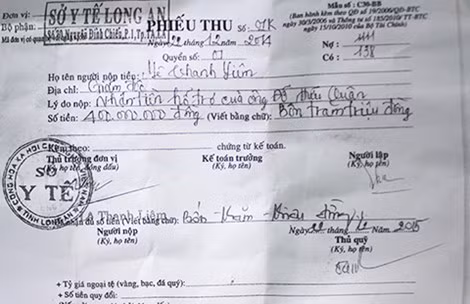 Đơn vị: SỞ Y TẾ LONG AN
Bộ phận: Số 70, Nguyễn Đình Chiểu, P.1, Tp.TA.LA
Mã đơn vị
PHIẾU THU Số: 01K
Mẫu số : C30-BB
(Ban hành kèm theo QĐ số 19/2006/QĐ-BTC
ngày 30/3/2006 và Thông tư số 185/2010/TT-BTC
ngày 15/10/2010 của Bộ Tài Chính)
Ngày 22 tháng 12 năm 2014
Quyển số: 01
Nợ : 111
Có : 138
Họ tên người nộp tiền: Lê Thanh Liêm
Địa chỉ: Giám đốc
Lý do nộp: Nhận tiền hỗ trợ của ông Đỗ Quân
Số tiền: 400.000.000 đồng (Viết bằng chữ): Bốn trăm triệu đồng
Kèm theo: chứng từ kế toán.
Thủ trưởng đơn vị
(Ký, họ tên, đóng dấu)
Kế toán trưởng
(Ký, họ tên)
Người lập
(Ký, họ tên)
SỞ
Y TẾ
TỈNH LONG AN
Thanh Liêm
nhận đủ số tiền (Viết bằng chữ): Bốn trăm triệu đồng
Ngày 22 tháng năm 2015
Người nộp
(Ký, họ tên)
Thủ quỹ
(Ký, họ tên)
+ Tỷ giá ngoại tệ (vàng, bạc, đá quý):
+ Số tiền quy đổi: